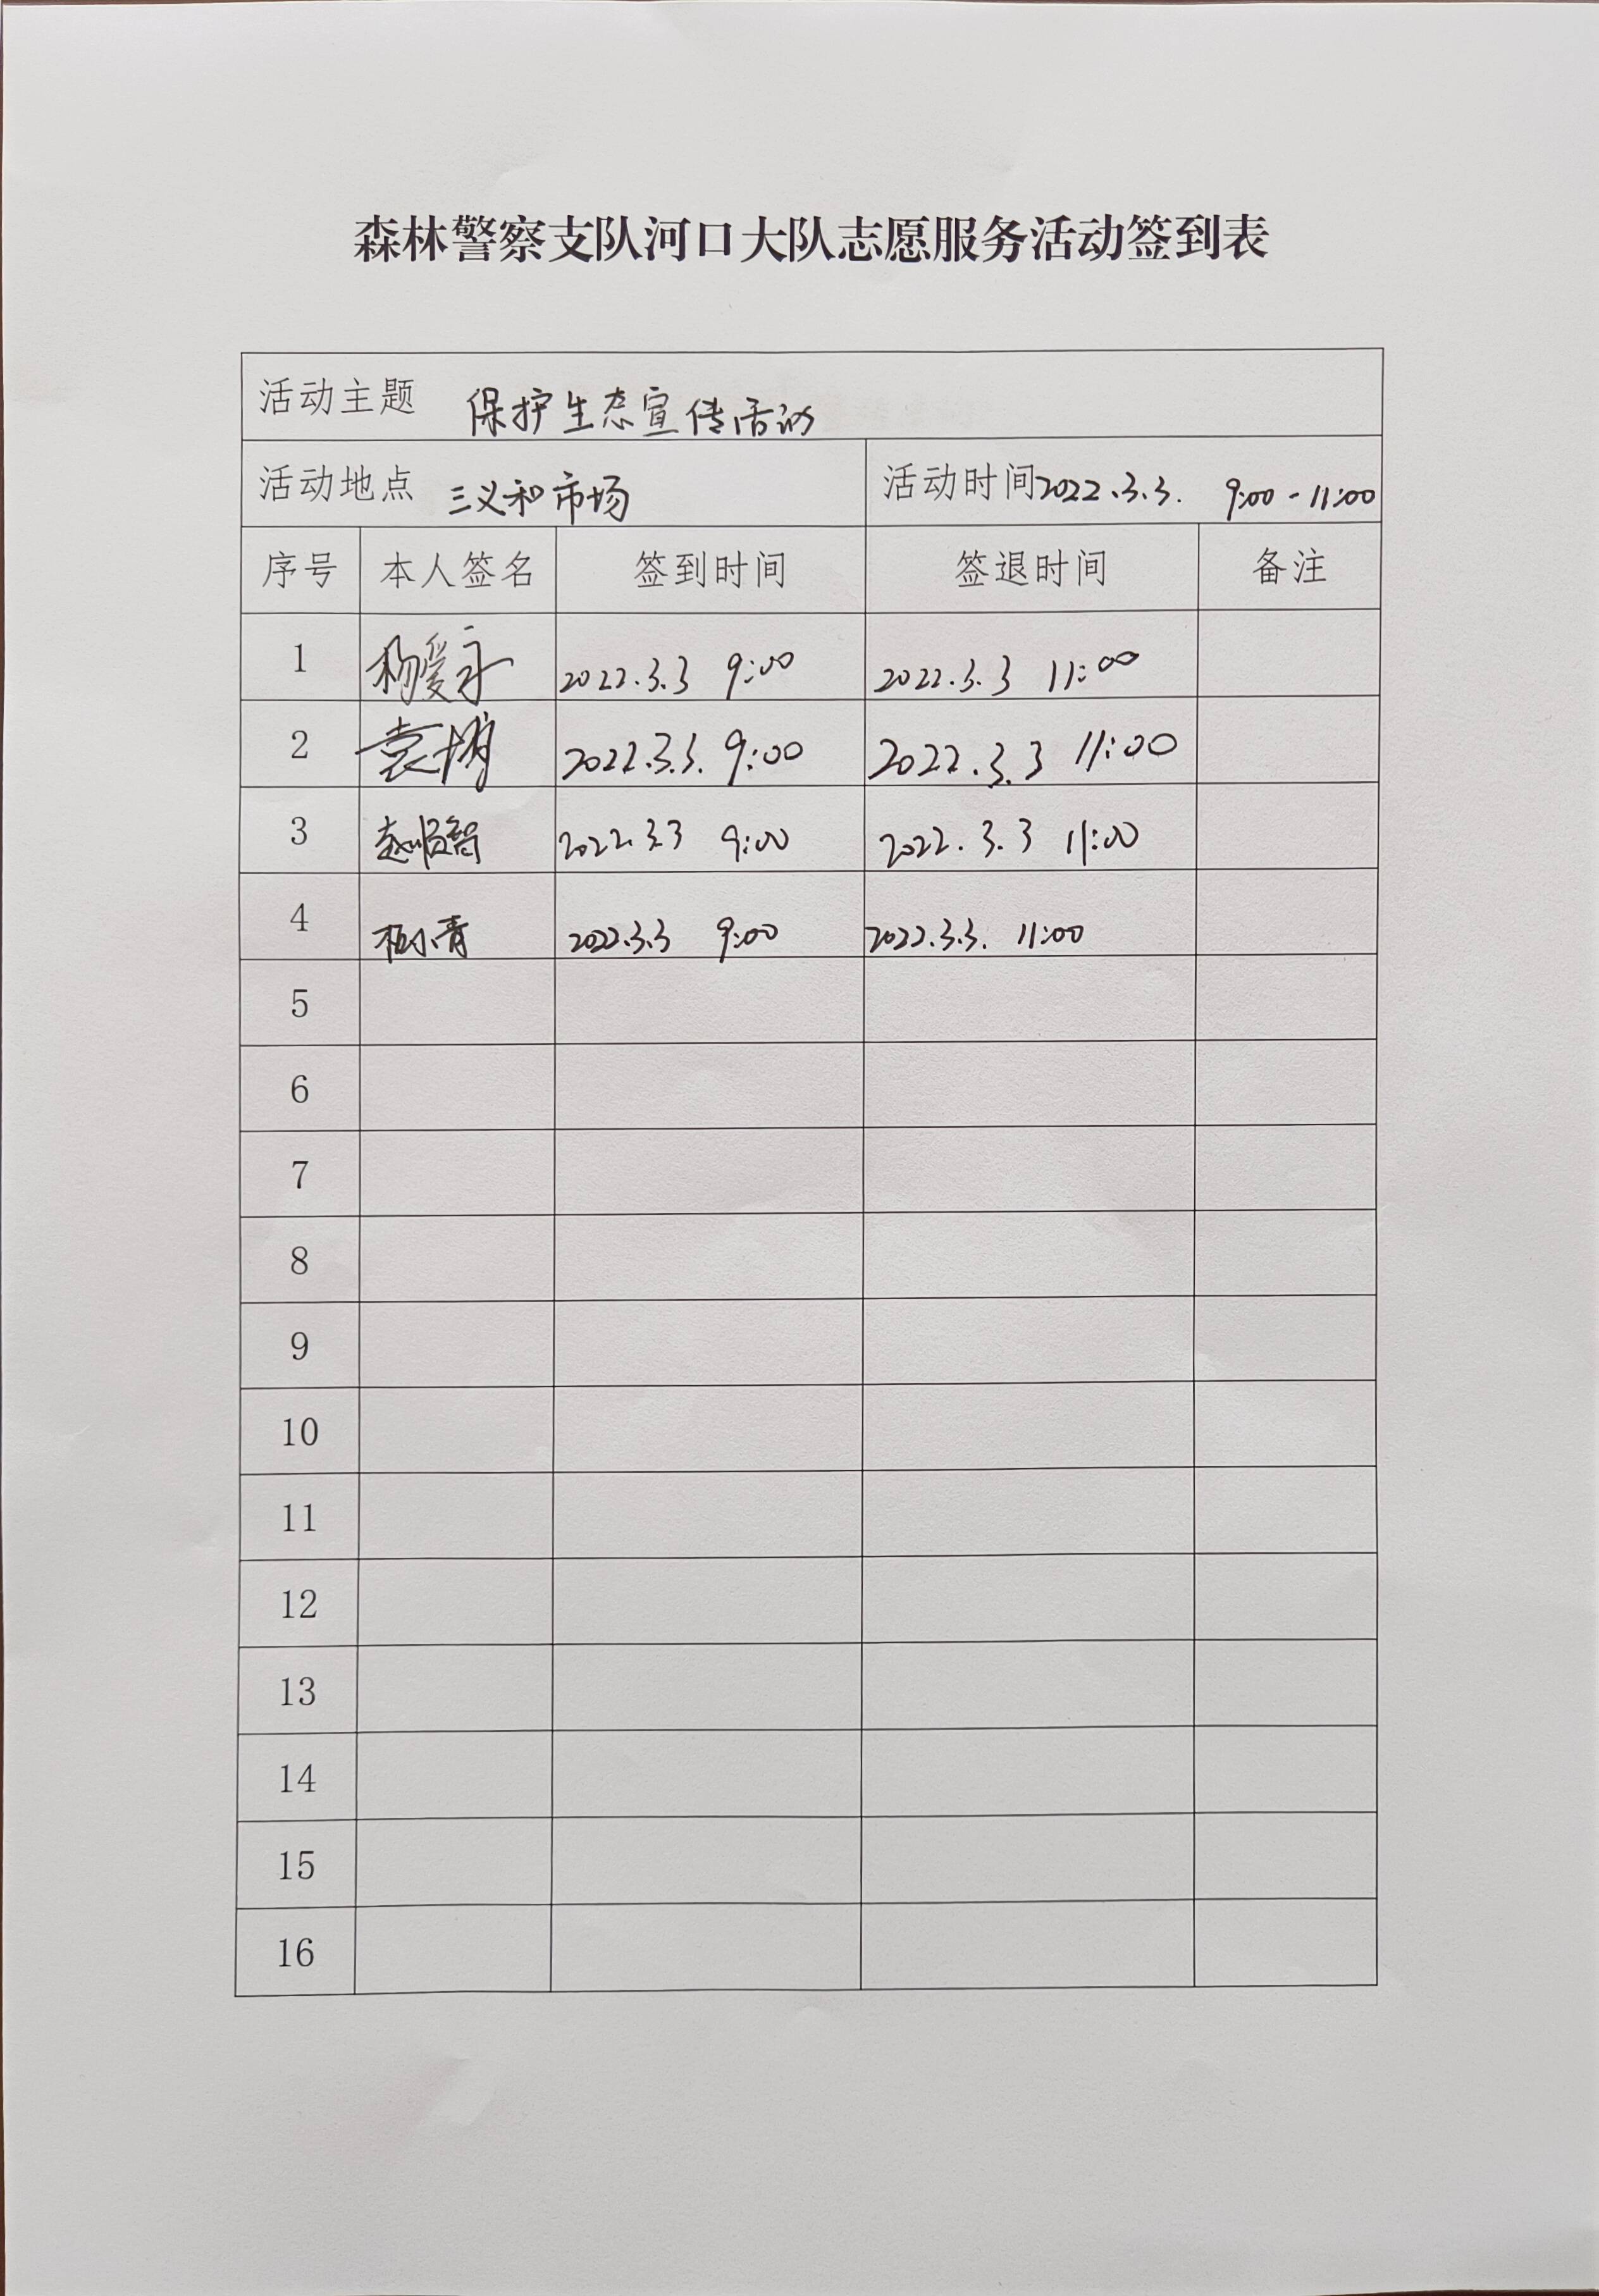 森林警察支队河口大队志愿服务活动签到表
活动主题 保护生态宣传活动
活动地点 三义和市场 活动时间 2022.3.3. 9:00-11:00
序号 本人签名 签到时间 签退时间 备注
1 杨爱永 2022.3.3 9:00 2022.3.3 11:00
2 袁 2022.3.3. 9:00 2022.3.3 11:00
3 赵顺智 2022.3.3 9:00 2022.3.3 11:00
4 小青 2022.3.3 9:00 2022.3.3. 11:00
5
6
7
8
9
10
11
12
13
14
15
16